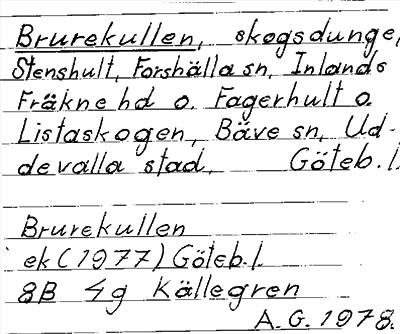 Brurekullen, skogsdunge,
Stenshult, Forshälla sn, Inlands
Fräkne hd o. Fagerhult o.
Listaskogen, Bäve sn, Ud-
devalla stad, Göteb. l.
Brurekullen
ek (1977) Göteb. l.
8B 4g Källegren
A. G. 1978.